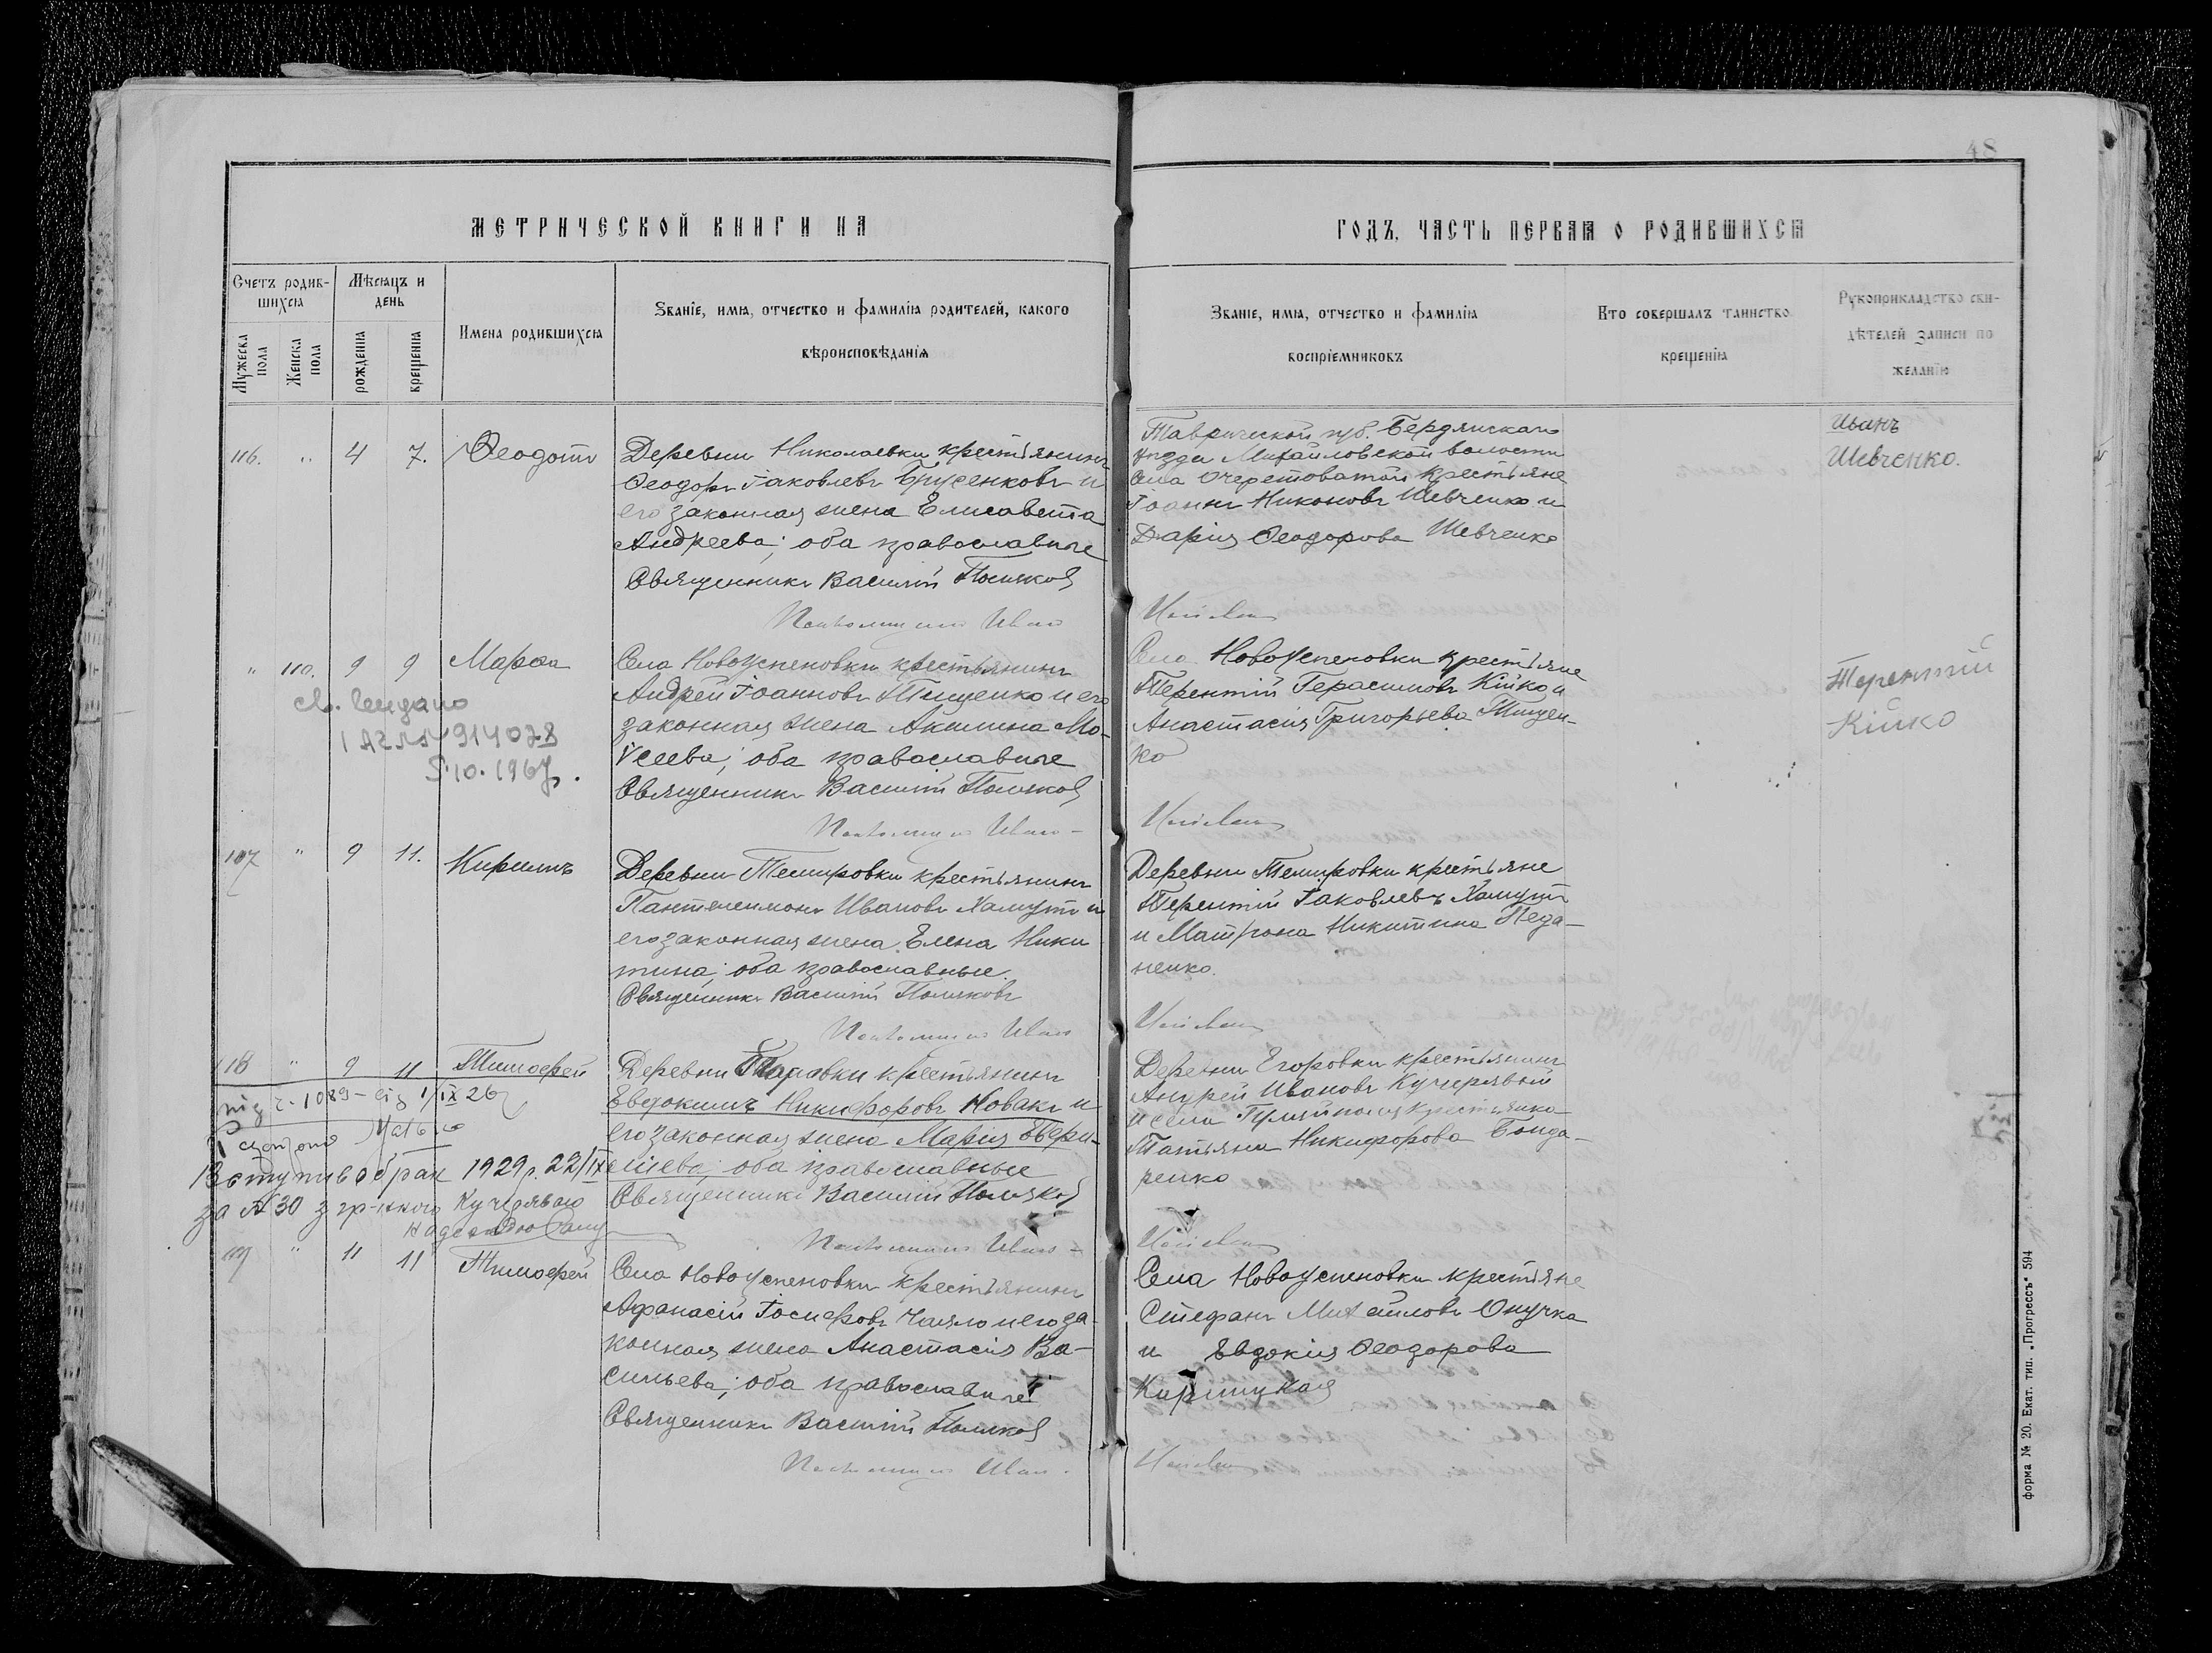 48
МЕТРИЧЕСКОЙ КНИГИ НА
ГОДЪ, ЧАСТЬ ПЕРВАЯ О РОДИВШИХСЯ
Счетъ родив-
шихся
Мѣсяцъ и
день
Мужеска
пола
Женска
пола
рожденія
крещенія
Имена родившихся
Званіе, имя, отчество и фамилія родителей, какого
вѣроисповѣданія
Званіе, имя, отчество и фамилія
воспріемниковъ
Кто совершалъ таинство
крещенія
Рукоприкладство сви-
дѣтелей записи по
желанію
116. " 4 7. Ѳеодотъ
Деревни Николаевки крестьянинъ
Ѳеодоръ Іаковлевъ Брусенковъ и
его законная жена Елисавета
Андреева; оба православные
Священникъ Василій Поляковъ
Псаломщикъ Иванъ
Таврической губ. Бердянскаго
уѣзда Михайловской волости
села Очеретоватой крестьяне
Іоаннъ Никоновъ Шевченко и
Дарія Ѳеодорова Шевченко
Иванъ
Шевченко.
" 110. 9 9 Марѳа
Села Новоуспеновки крестьянинъ
Андрей Іоанновъ Тищенко и его
законная жена Акилина Мо-
ѵсеева; оба православные
Священникъ Василій Поляковъ
Псаломщикъ Иванъ
Села Новоуспеновки крестьяне
Терентій Герасимовъ Кійко и
Анастасія Григорьева Тищен-
ко
Терентій
Кійко
914028
5.10.1967.
117 " 9 11. Кириллъ
Деревни Темировки крестьянинъ
Пантелеимонъ Ивановъ Хамутъ и
его законная жена Елена Ники
тина; оба православные.
Священникъ Василій Поляковъ
Псаломщикъ Иванъ
Деревни Темировки крестьяне
Терентій Іаковлевъ Хамутъ
и Матрона Никитина Педа-
ненко.
118 " 9 11 Тимоѳей
Деревни крестьянинъ
Евдокимъ Никифоровъ Новакъ и
его законная жена Марія
оба православные
Священникъ Василій Поляковъ
Псаломщикъ Иванъ
Деревни Егоровки крестьянинъ
Андрей Ивановъ Кучерявый
и села Гуляйполя крестьянка
Татьяна Никифорова Бонда-
ренко
1089 IX 26
Вступив в брак 1929 р. 22/IX
за № 30 з гр-кою Кучерявою
119 " 11 11 Тимоѳей
Села Новоуспеновки крестьянинъ
Аѳанасій Іосифовъ и его за-
конная жена Анастасія Ва-
сильева; оба православные
Священникъ Василій Поляковъ
Псаломщикъ Иванъ
Села Новоуспеновки крестьяне
Стефанъ Михайловъ Онучка
и Евдокія Ѳеодорова
форма № 20. Екат. тип. „Прогрессъ" 594